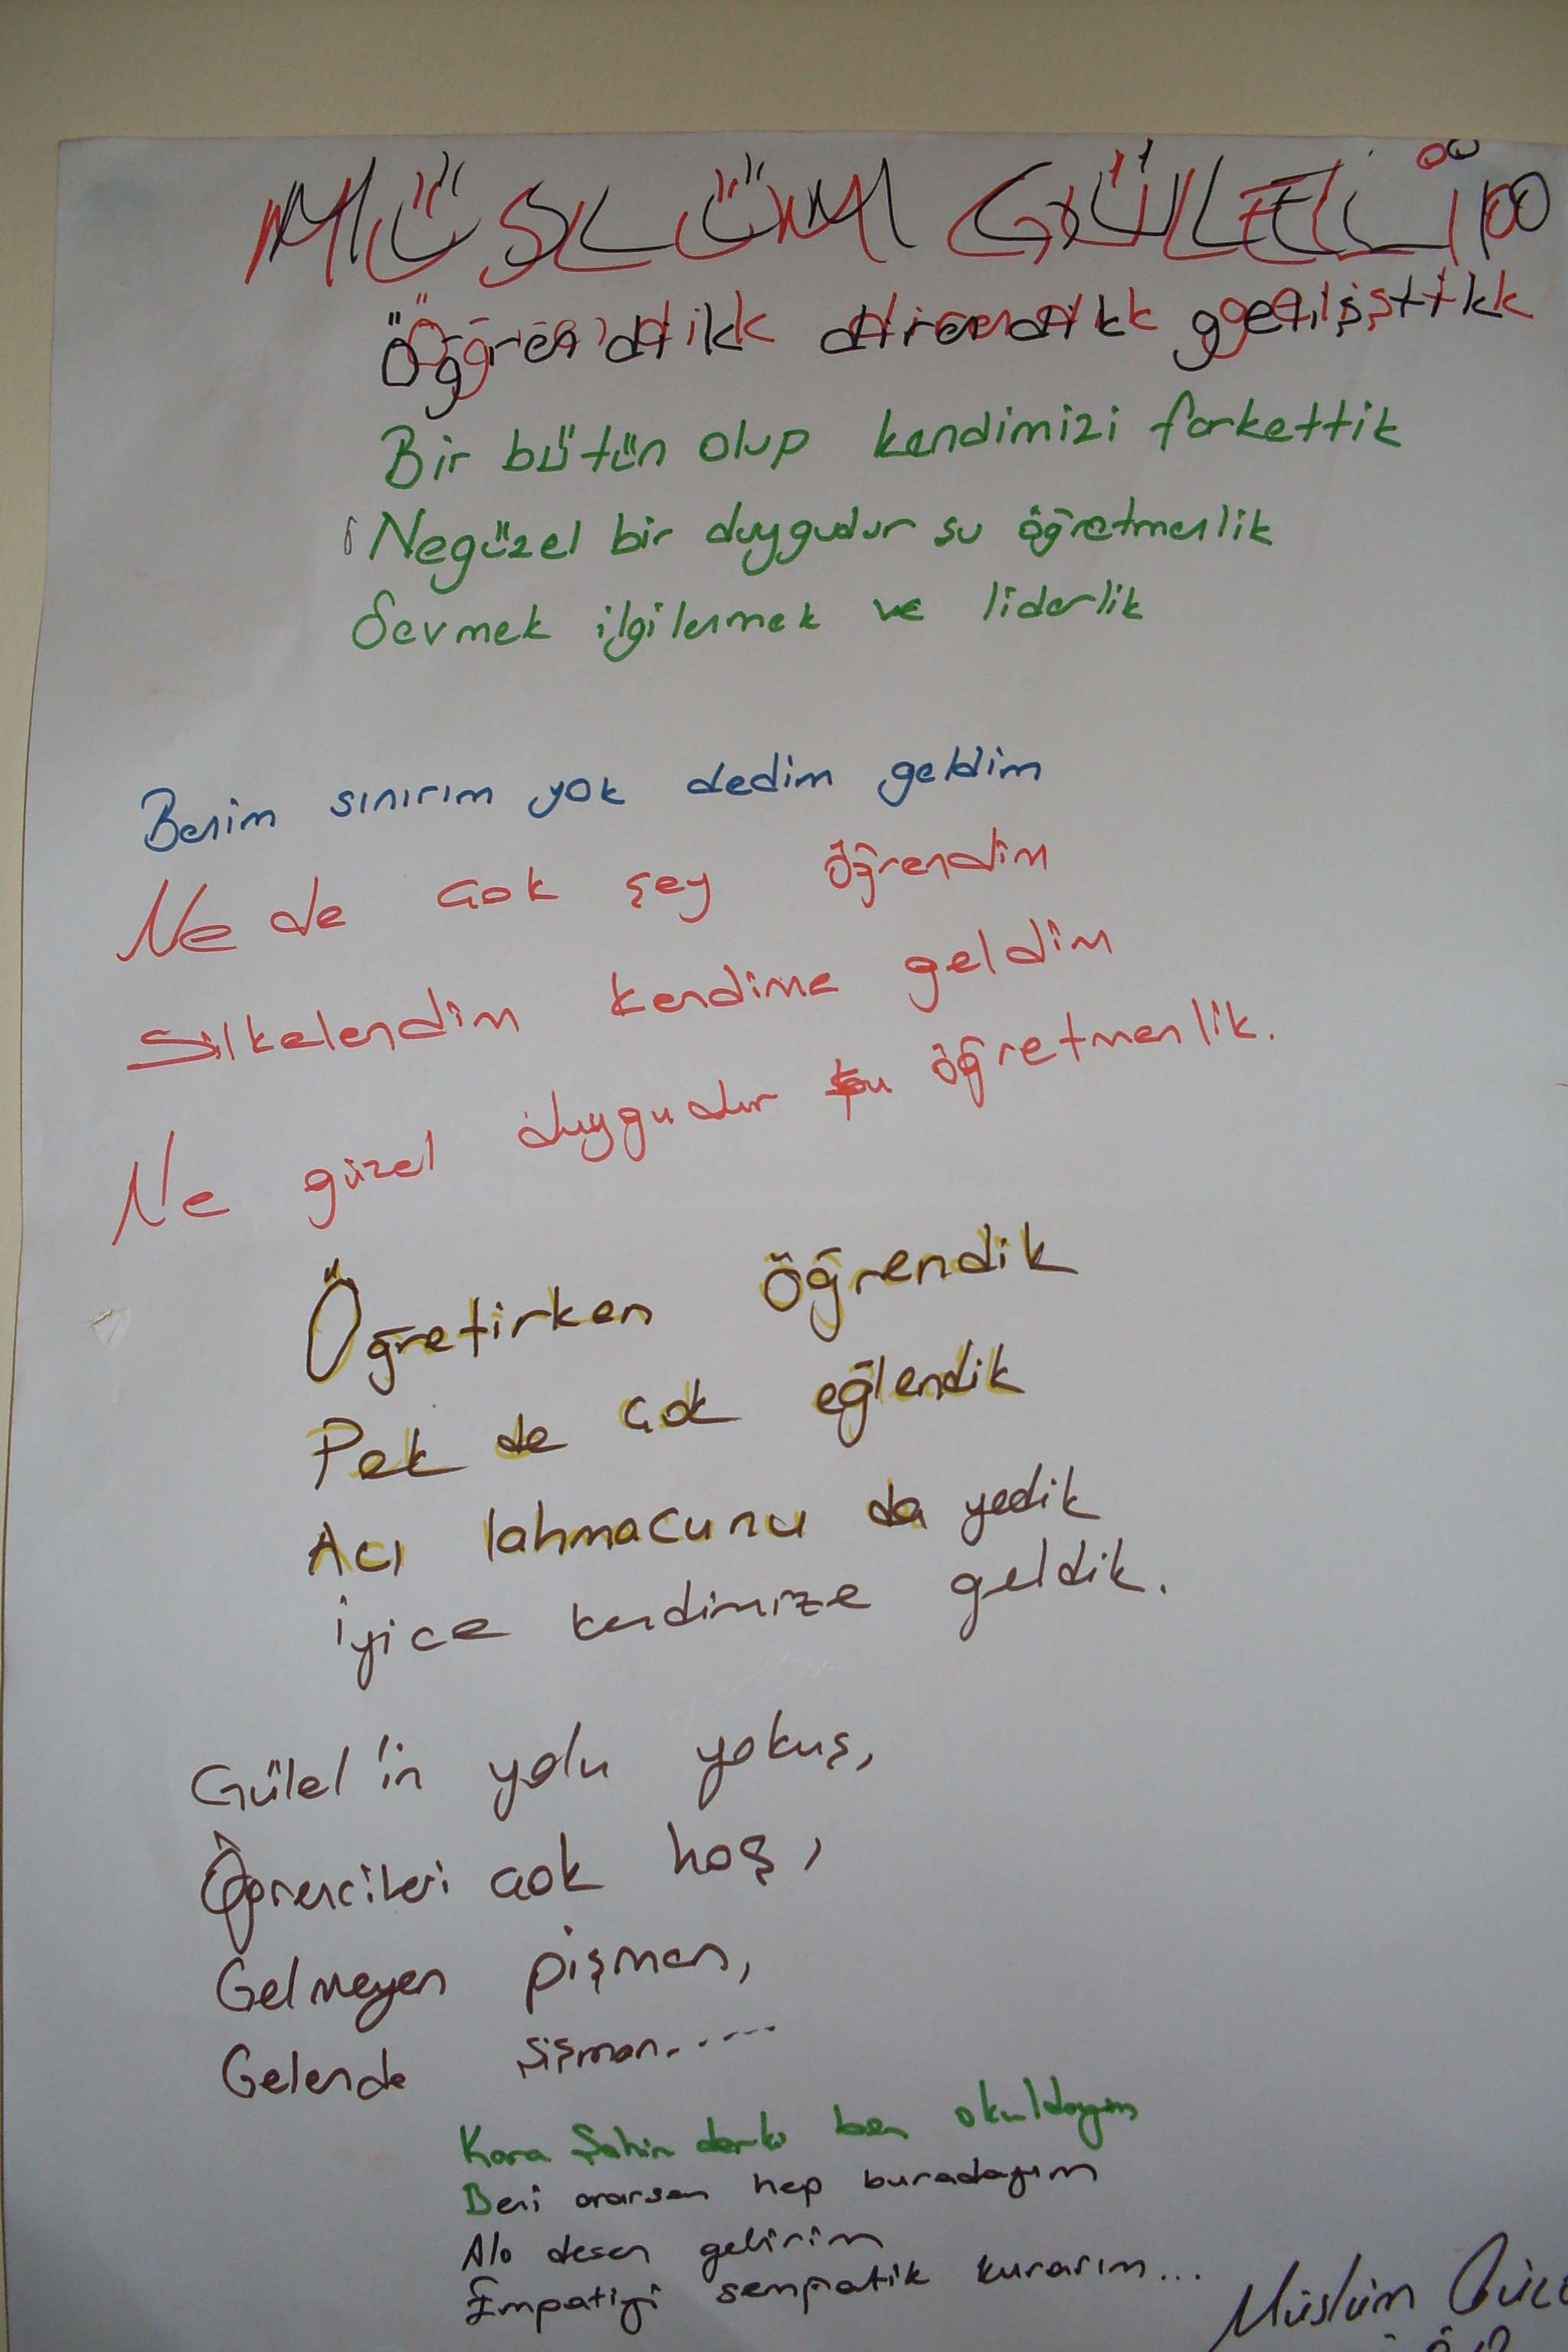 MÜSLÜM GÜLEL İÖO
Öğrendik direndik geliştik
Bir bütün olup kendimizi farkettik
Negüzel bir duygudur şu öğretmenlik
Sevmek ilgilenmek ve liderlik
Benim sınırım yok dedim geldim
Ne de çok şey öğrendim
Silkelendim kendime geldim
Ne güzel duygudur şu öğretmenlik.
Öğretirken öğrendik
Pek de çok eğlendik
Acı lahmacunu da yedik
İyice kendimize geldik.
Gülel'in yolu yokuş,
Öğrencileri çok hoş,
Gelmeyen pişman,
Gelende şişman......
Kara Şahin derki ben okuldayım
Beni ararsan hep buradayım
Alo desen gelirim
Empatiyi sempatik kurarım...
Müslüm